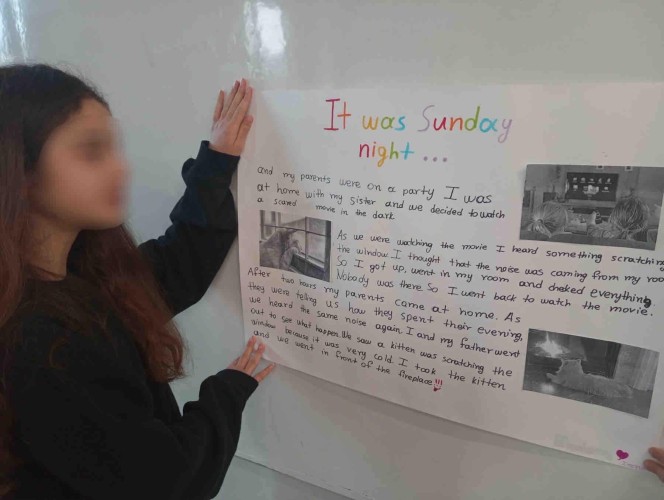 It was Sunday
night ...
and my parents were on a party I was
at home with my sister and we decided to watch
a scared movie in the dark
As we were watching the movie I heard something scratching
the window. I thought that the noise was coming from my room
So I got up, went in my room and cheked everything.
Nobody was there. So I went back to watch the movie.
After two hours my parents came at home. As
they were telling us how they spent their evening,
we heard the same noise again. I and my father went
out to see what happen. We saw a kitten was scratching the
window because it was very cold. I took the kitten
and we went in front of the fireplace!!!